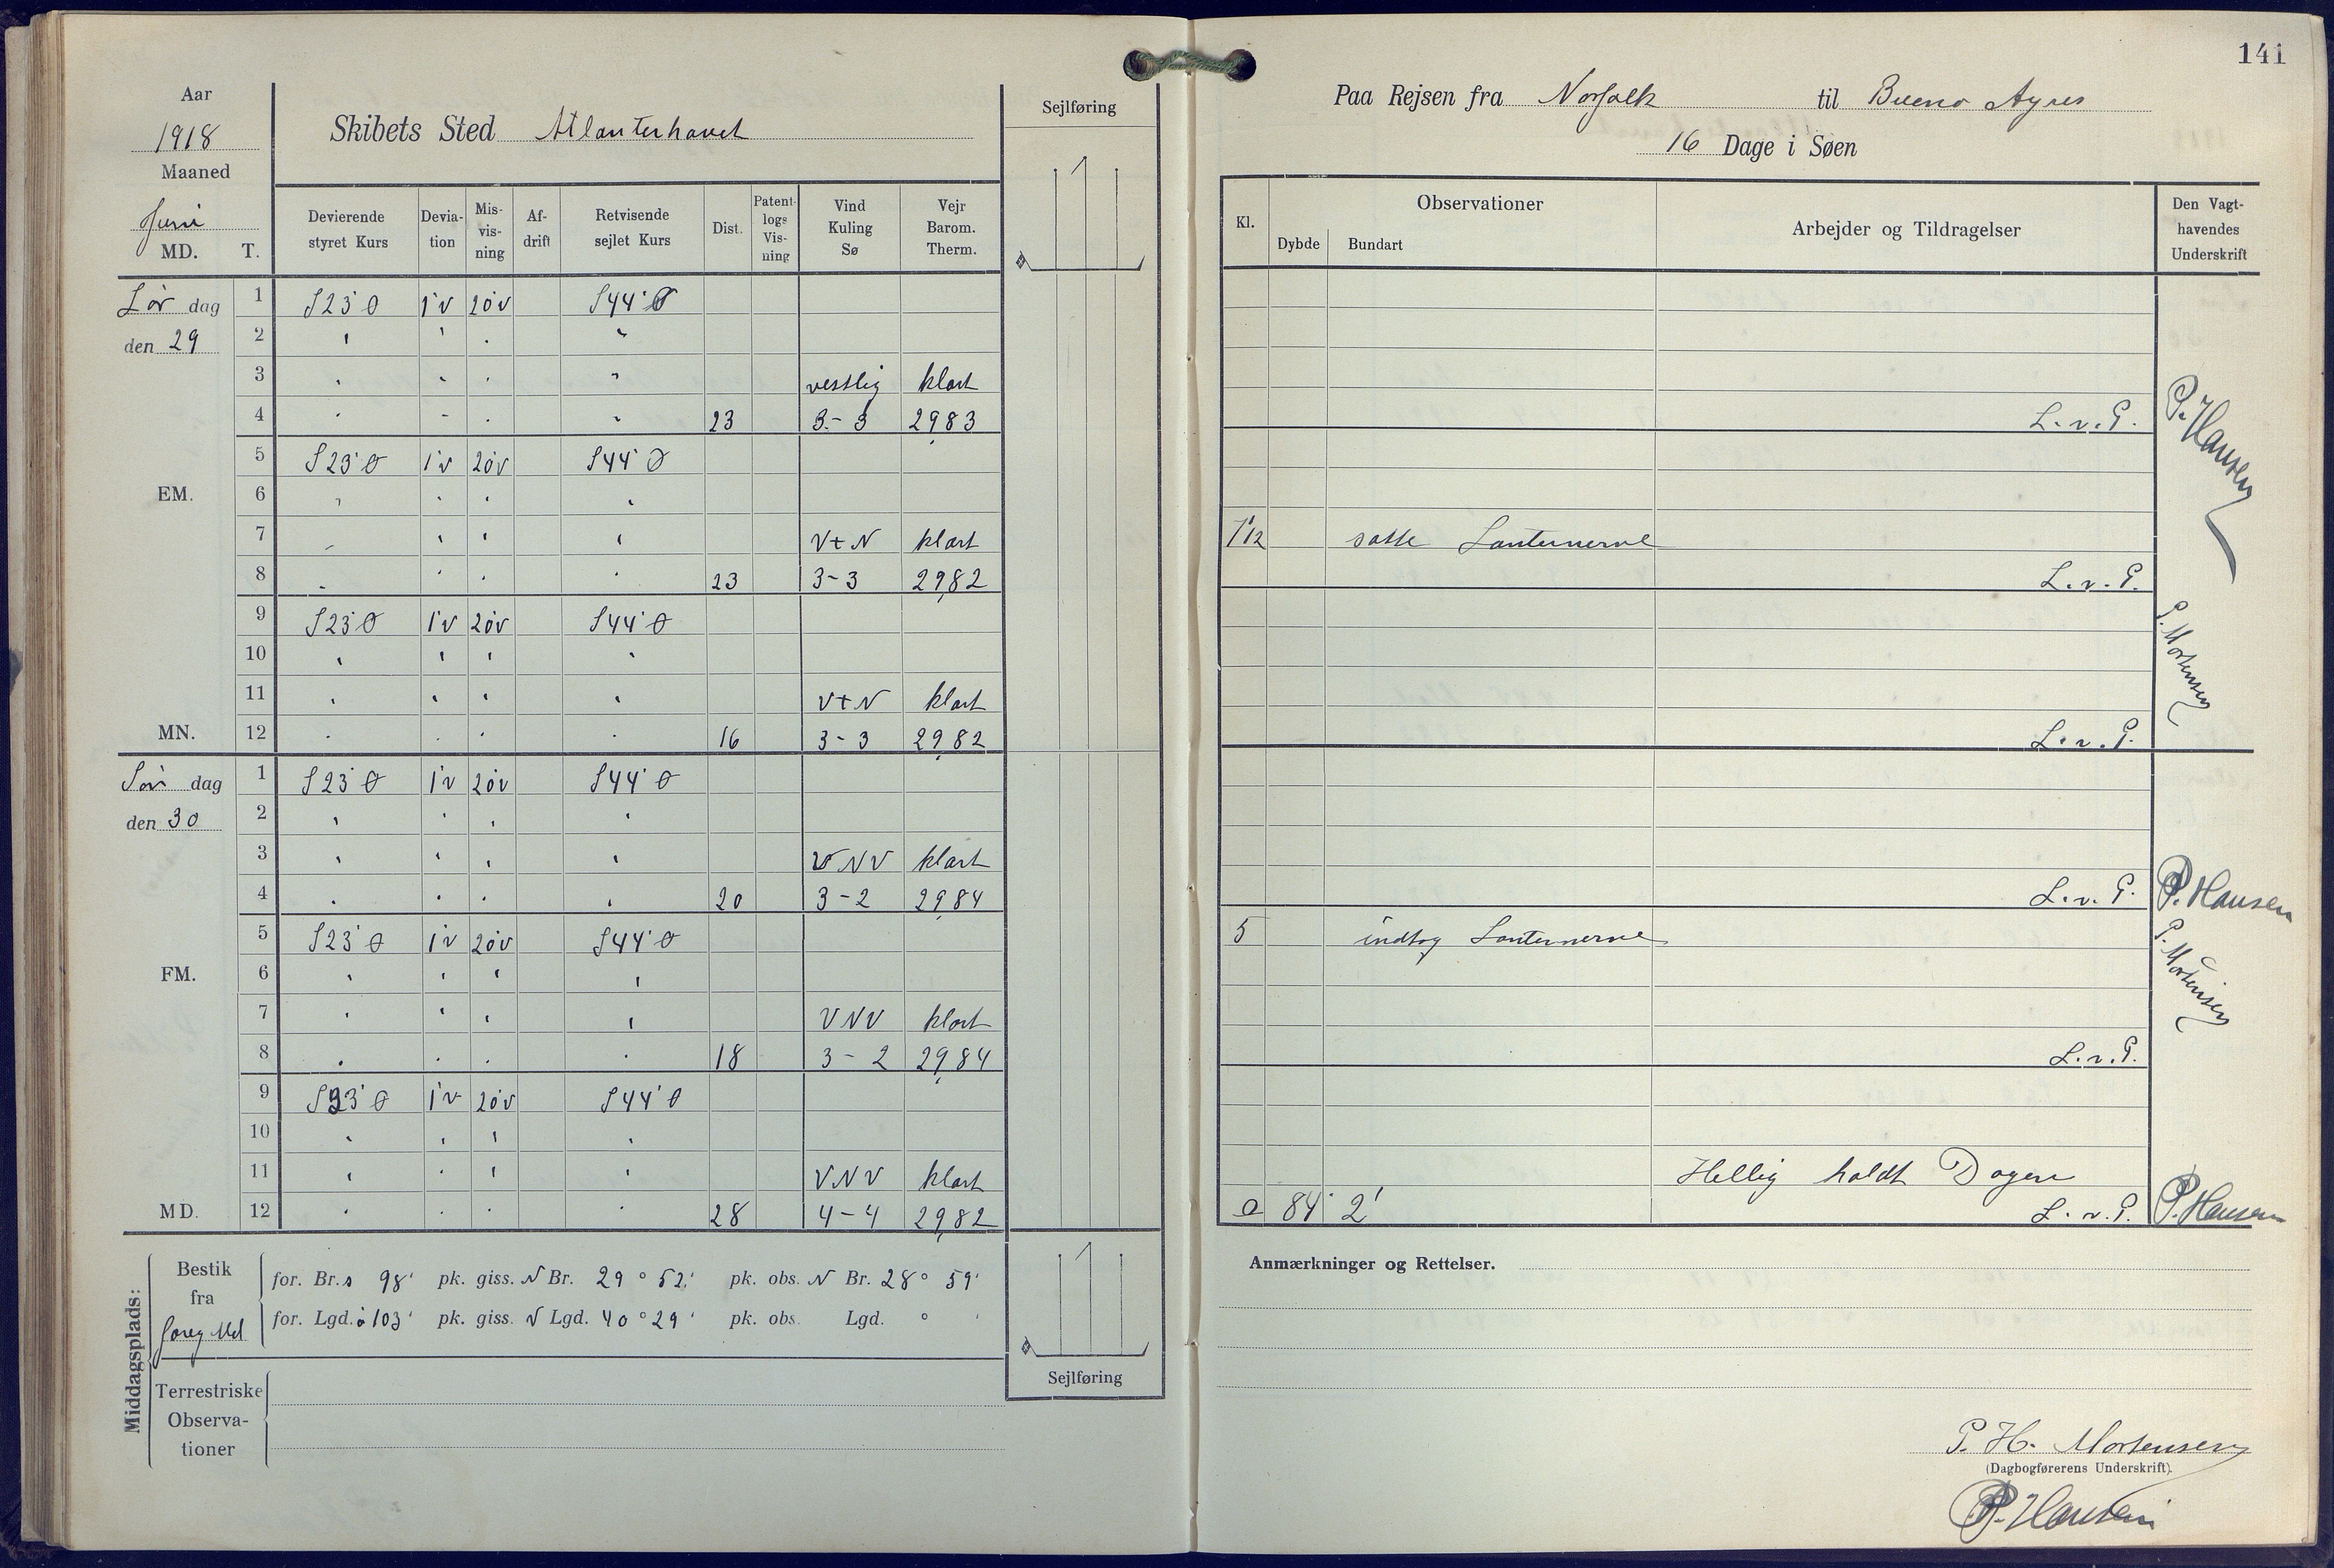 141
Aar
1918
Maaned
Juni
MD. T.
Skibets Sted Atlanterhavet
Sejlføring
Paa Rejsen fra Norfolk til Bueno Ayres
16 Dage i Søen
Devierende styret Kurs
Devia-tion
Mis-vis-ning
Af-drift
Retvisende sejlet Kurs
Dist.
Patent-logs Vis-ning
Vind Kuling Sø
Vejr Barom. Therm.
Kl.
Observationer
Dybde Bundart
Arbejder og Tildragelser
Den Vagt-havendes Underskrift
Lør dag 1 S23°Ø 1°V 20°V S44°Ø
den 29 2 " " " "
3 " " " " vestlig klart
4 " " " " 23 3-3 29,83 L.v.P. P. Hansen
5 S23°Ø 1°V 20°V S44°Ø
EM. 6 " " " "
7 " " " " V t N klart 7 1/2 satte Lanternerne
8 " " " " 23 3-3 29,82 L.v.P.
9 S23°Ø 1°V 20°V S44°Ø P. Mortensen
10 " " " "
11 " " " " V t N klart
MN. 12 " " " " 16 3-3 29,82 L.v.P.
Søn dag 1 S23°Ø 1°V 20°V S44°Ø
den 30 2 " " " "
3 " " " " VNV klart
4 " " " " 20 3-2 29,84 L.v.P. P. Hansen
5 S23°Ø 1°V 20°V S44°Ø 5 indtog Lanternerne P. Mortensen
FM. 6 " " " "
7 " " " " VNV klart
8 " " " " 18 3-2 29,84 L.v.P.
9 S23°Ø 1°V 20°V S44°Ø
10 " " " "
11 " " " " VNV klart Hellig holdt Dagen
MD. 12 " " " " 28 4-4 29,82 84° 2' L.v.P. P. Hansen
Middagsplads:
Bestik fra foreg Md
for. Br. s 98' pk. giss. N Br. 29° 52' pk. obs. N Br. 28° 59'
for. Lgd. ö 103' pk. giss. V Lgd. 40° 29' pk. obs. Lgd. °
Terrestriske Observa-tioner
Sejlføring
Anmærkninger og Rettelser.
P. H. Mortensen
(Dagbogførerens Underskrift).
P. Hansen